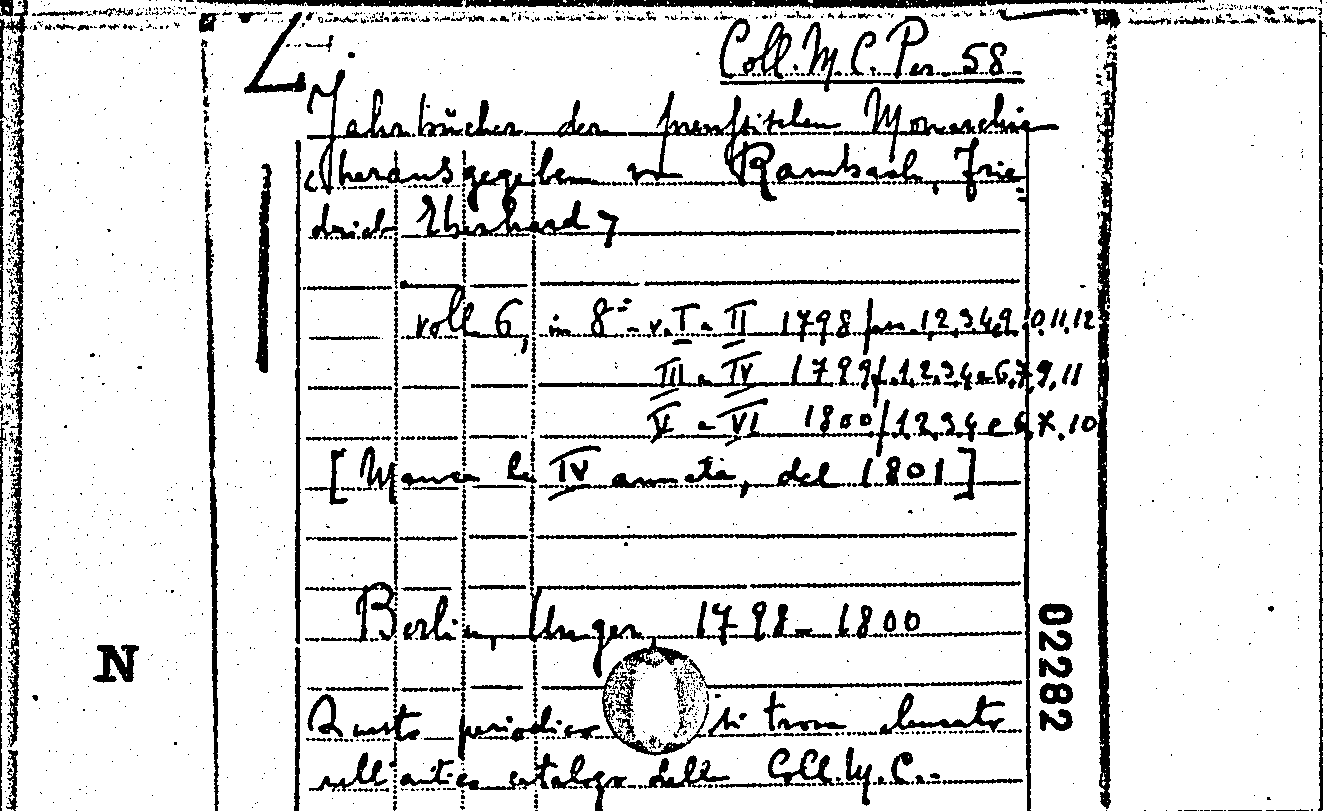 Coll. M. C. Per 58
Jahrbücher der preußischen Monarchie
<herausgegeben von Rambach, Frie=
drich Eberhard>
voll. 6, in 8° - v. I - II 1798 / 1,2,3,4,9,10,11,12
III - IV 1799 /. 1.2.3.4 e 6,7,9,11
V - VI 1800 / 1,2,3,4 e 6,7,10
[Manca la IV annata, del 1801]
Berlin, Unger, 1798 - 1800
Questo periodico si trova elencato
nell'antico catalogo della Coll. M. C. -
N
02282